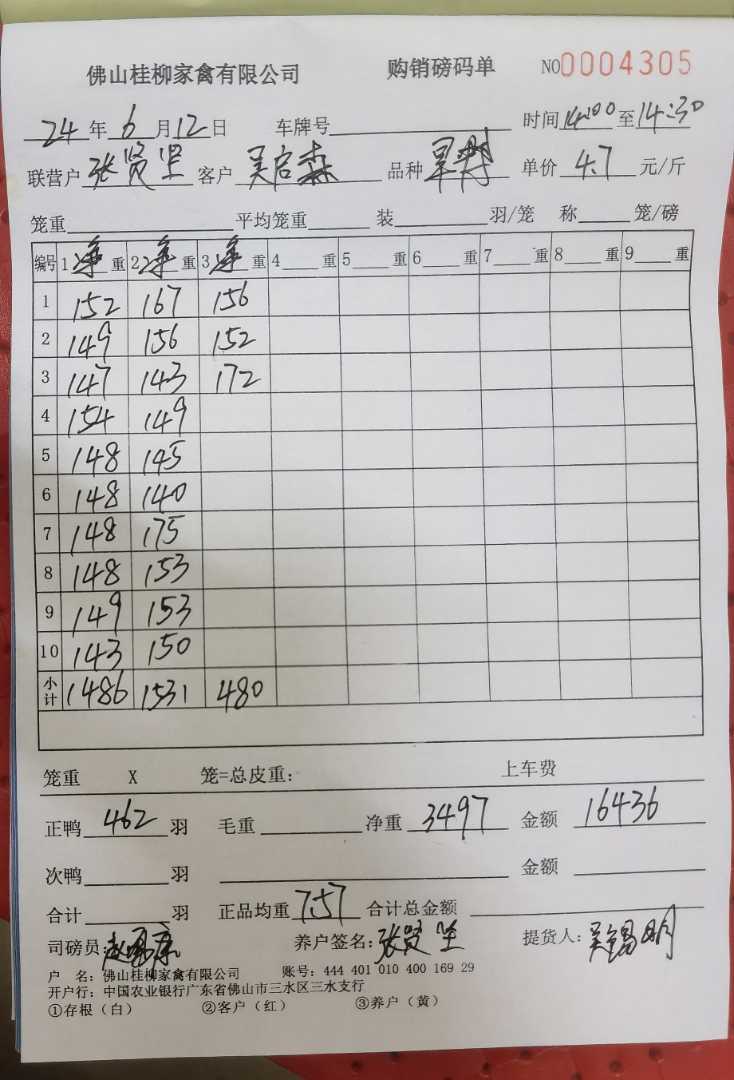 佛山桂柳家禽有限公司 购销磅码单 NO0004305
24年6月12日 车牌号 时间14:00至14:30
联营户张贤坚 客户吴启森 品种 单价4.7元/斤
笼重 平均笼重 装 羽/笼 称 笼/磅
编号 1净重 2净重 3净重 4 重 5 重 6 重 7 重 8 重 9 重
1 152 167 156
2 149 156 152
3 147 143 172
4 154 149
5 148 145
6 148 140
7 148 175
8 148 153
9 149 153
10 143 150
小计 1486 1531 480
笼重 X 笼=总皮重: 上车费
正鸭462羽 毛重 净重3497 金额16436
次鸭 羽 金额
合计 羽 正品均重7.57 合计总金额
司磅员: 养户签名:张贤坚 提货人:吴锡明
户 名:佛山桂柳家禽有限公司 账号:444 401 010 400 169 29
开户行:中国农业银行广东省佛山市三水区三水支行
①存根(白) ②客户(红) ③养户(黄)